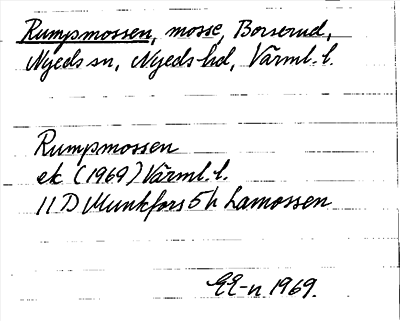 Rumpmossen, mosse, Borserud,
Nyeds sn, Nyeds hd, Värml. l.
Rumpmossen
ek (1969) Värml. l.
11 D Munkfors 5 h Lamossen
EE-n 1969.